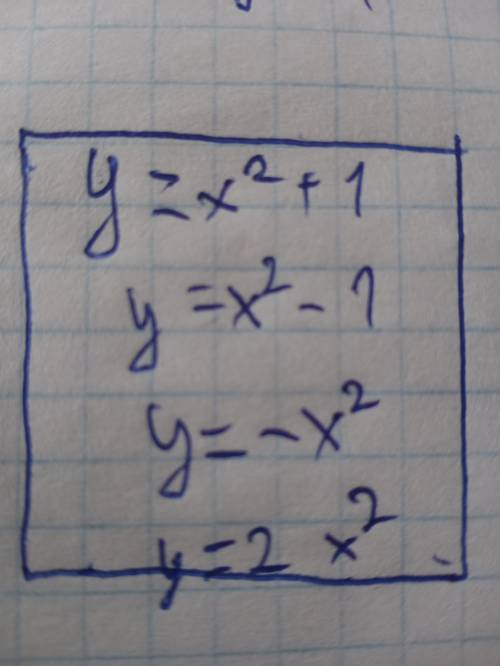 y = x² + 1
y = x² - 1
y = -x²
y = 2 x²